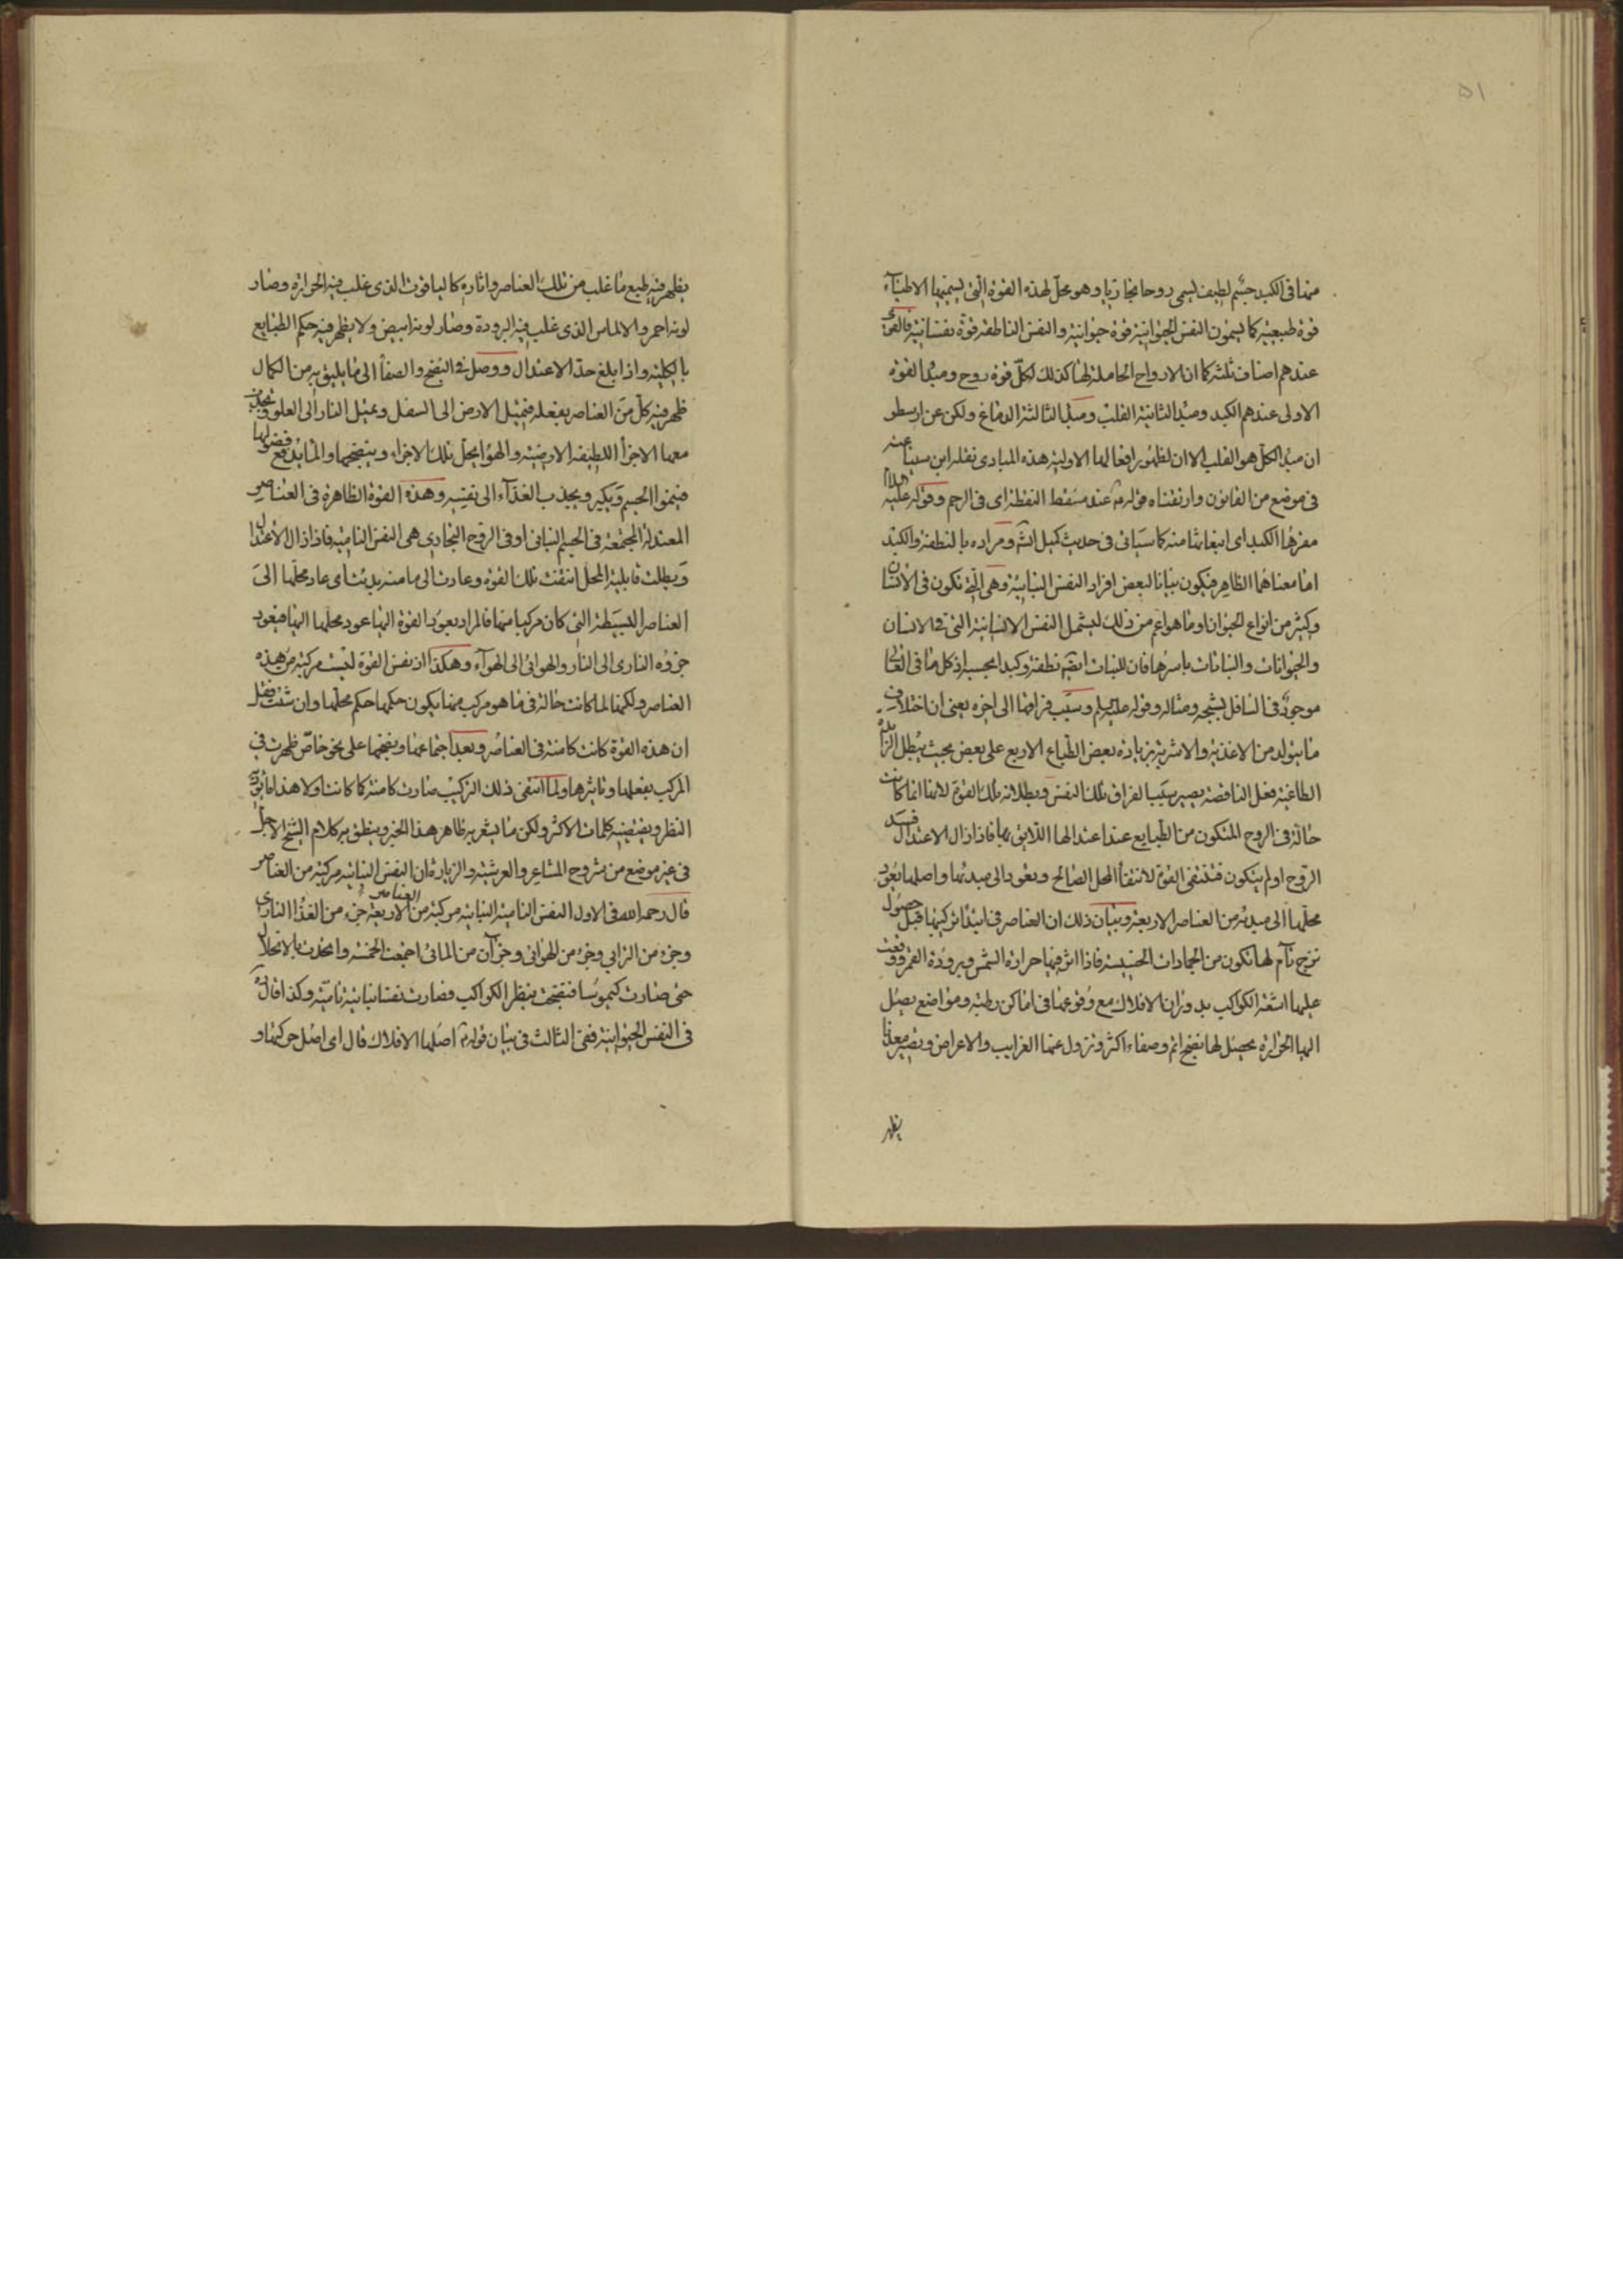 ٥١
منها فى الكبد جسم لطيف يسمى روحا بخاريا وهو محل لهذه القوة التى يسميها الاطباء
قوة طبيعية كما يسمون النفس الحيوانية قوة حيوانية والنفس الناطقة قوة نفسانية فالقوى
عندهم اصناف ثلثة كما ان الارواح الحاملة لها كذلك لكل قوة روح ومبدأ القوة
الاولى عندهم الكبد ومبدأ الثانية القلب ومبدأ الثالثة الدماغ ولكن عن ارسطو
ان مبدأ الكل هو القلب الا ان لظهور افعالها الاولية هذه المبادى نقله ابن سينا عنه
فى موضع من القانون وارتقناه قوله ع عند مسقط النطفة اى فى الرحم وقوله عليه السلام
مقرها الكبد اى انبعاثها منه كما سيأتى فى حديث كميل انشه ومراده بالنطفة والكبد
اما معناهما الظاهر فيكون بيانا لبعض افراد النفس النباتية وهى التى تكون فى الانسان
وكثير من انواع الحيوان او ما هو اعم من ذلك ليشمل النفس الانسانية التى فى الانسان
والحيوانات والنباتات باسرها فان للنبات ايضا نطفة وكبدا بحسبه اذ كل ما فى العالى
موجود فى السافل بشبحه ومثاله وقوله عليه السلام وسبب فراقها الى اخره يعنى ان اختلاف
ما يتولد من الاغذية والاشربة بزيادة بعض الطباع الاربع على بعض بحيث يبطل الزائدة
الطاغية فعل الناقصة يصير سببا لفراق تلك النفس وبطلانه تلك القوة لانها انما كانت
حالة فى الروح المتكون من الطبايع عند اعتدالها اللايق بها فاذا زال الاعتدال فسد
الروح او لم يتكون فتنتفى القوة لانتفاء المحل الصالح وتعود الى مبدئها واصلها بعود
محلها الى مبدئه من العناصر الاربعة وبيان ذلك ان العناصر فى ابتداء تركيبها قبل حصول
نضج تام لها تكون من الجمادات الخسيسة فاذا اثر فيها حرارة الشمس وبرودة القمر ووقعت
عليها اشعة الكواكب بدوران الافلاك مع وقوعها فى اماكن رطبة ومواضع يصل
اليها الحرارة يحصل لها نضج اتم وصفاء اكثر وتزول عنها الغرايب والاعراض ويصير معدنا
يظهر
يظهر فيه طبع ما غلب من تلك العناصر واثاره كالياقوت الذى غلب فيه الحرارة وصار
لونه احمر والالماس الذى غلب فيه البرودة وصار لونه ابيض ولا يظهر فيه حكم الطبايع
بالكلية واذا بلغ حد الاعتدال ووصل فى النضج والصفاء الى ما يليق به من الكمال
ظهر فيه كل من العناصر بفعله فيميل الارض الى السفل ويميل النار الى العلو وتجذب
معها الاجزاء اللطيفة الارضية والهواء يحل تلك الاجزاء وينضجها والماء يدفع فضولها
فينموا الجسم ويكبر ويجذب الغذاء الى نفسه وهذه القوة الظاهرة فى العناصر
المعتدلة المجتمعة فى الجسم النباتى او فى الروح البخارى هى النفس النامية فاذا زال الاعتدال
وبطلت قابلية المحل انتفت تلك القوة وعادت الى ما منه بدئت اى عاد محلها الى
العناصر البسيطة التى كان مركبا منها فالمراد بعود القوة اليها عود محلها اليها فيعود
جزؤه النارى الى النار والهوائى الى الهواء وهكذا اذ نفس القوة ليست مركبة من هذه
العناصر ولكنها لما كانت حالة فى ما هو مركب منها يكون حكمها حكم محلها وان شئت فقل
ان هذه القوة كانت كامنة فى العناصر وبعد اجتماعها ونضجها على نحو خاص ظهرت فى
المركب بفعلها وتاثيرها ولما انتفى ذلك التركيب صارت كامنة كما كانت اولا هذا ما يؤدى
النظر ويقتضيه كلمات الاكثر ولكن ما يشعر به ظاهر هذا الخبر وينطق به كلام الشيخ الاجل
فى غير موضع من شروح المشاعر والعرشية والزيارة ان النفس النباتية مركبة من العناصر
قال رحمه الله فى الاول النفس النامية النباتية مركبة من العناصر الاربعة جزء من الغذاء النارى
وجزء من الترابى وجزء من الهوائى وجزآن من المائى اجتمعت الخمسة واتحدت بالانحلال
حتى صارت كيموسا فنضجت بنظر الكواكب فصارت نفسا نباتية نامية وكذا قال
فى النفس الحيوانية ففى الثالث فى بيان قوله ع اصلها الافلاك قال اى اصل حركتها و